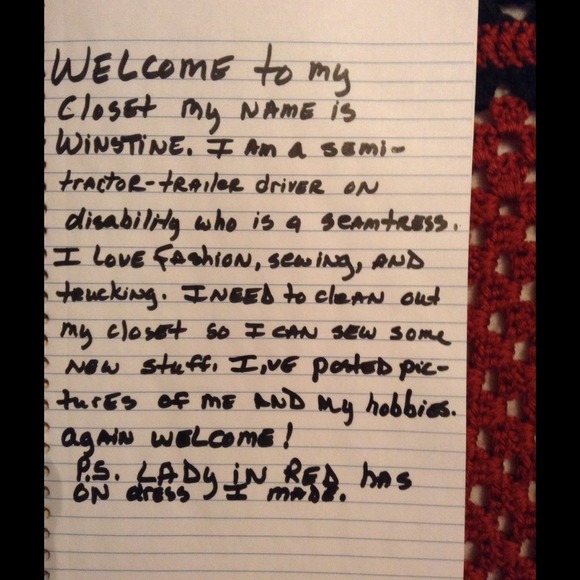 WELCOME to my
Closet my NAME is
WINSTINE. I Am a semi-
tractor-trailer driver ON
disability who is a seamtress.
I LOVE fashion, sewing, AND
trucking. I NEED to clEAN out
my closet so I CAN sew some
NEW stuff. I,VE posted pic-
tures of me AND my hobbies.
again WELCOME!
P.S. LADY IN RED has
ON dress I made.